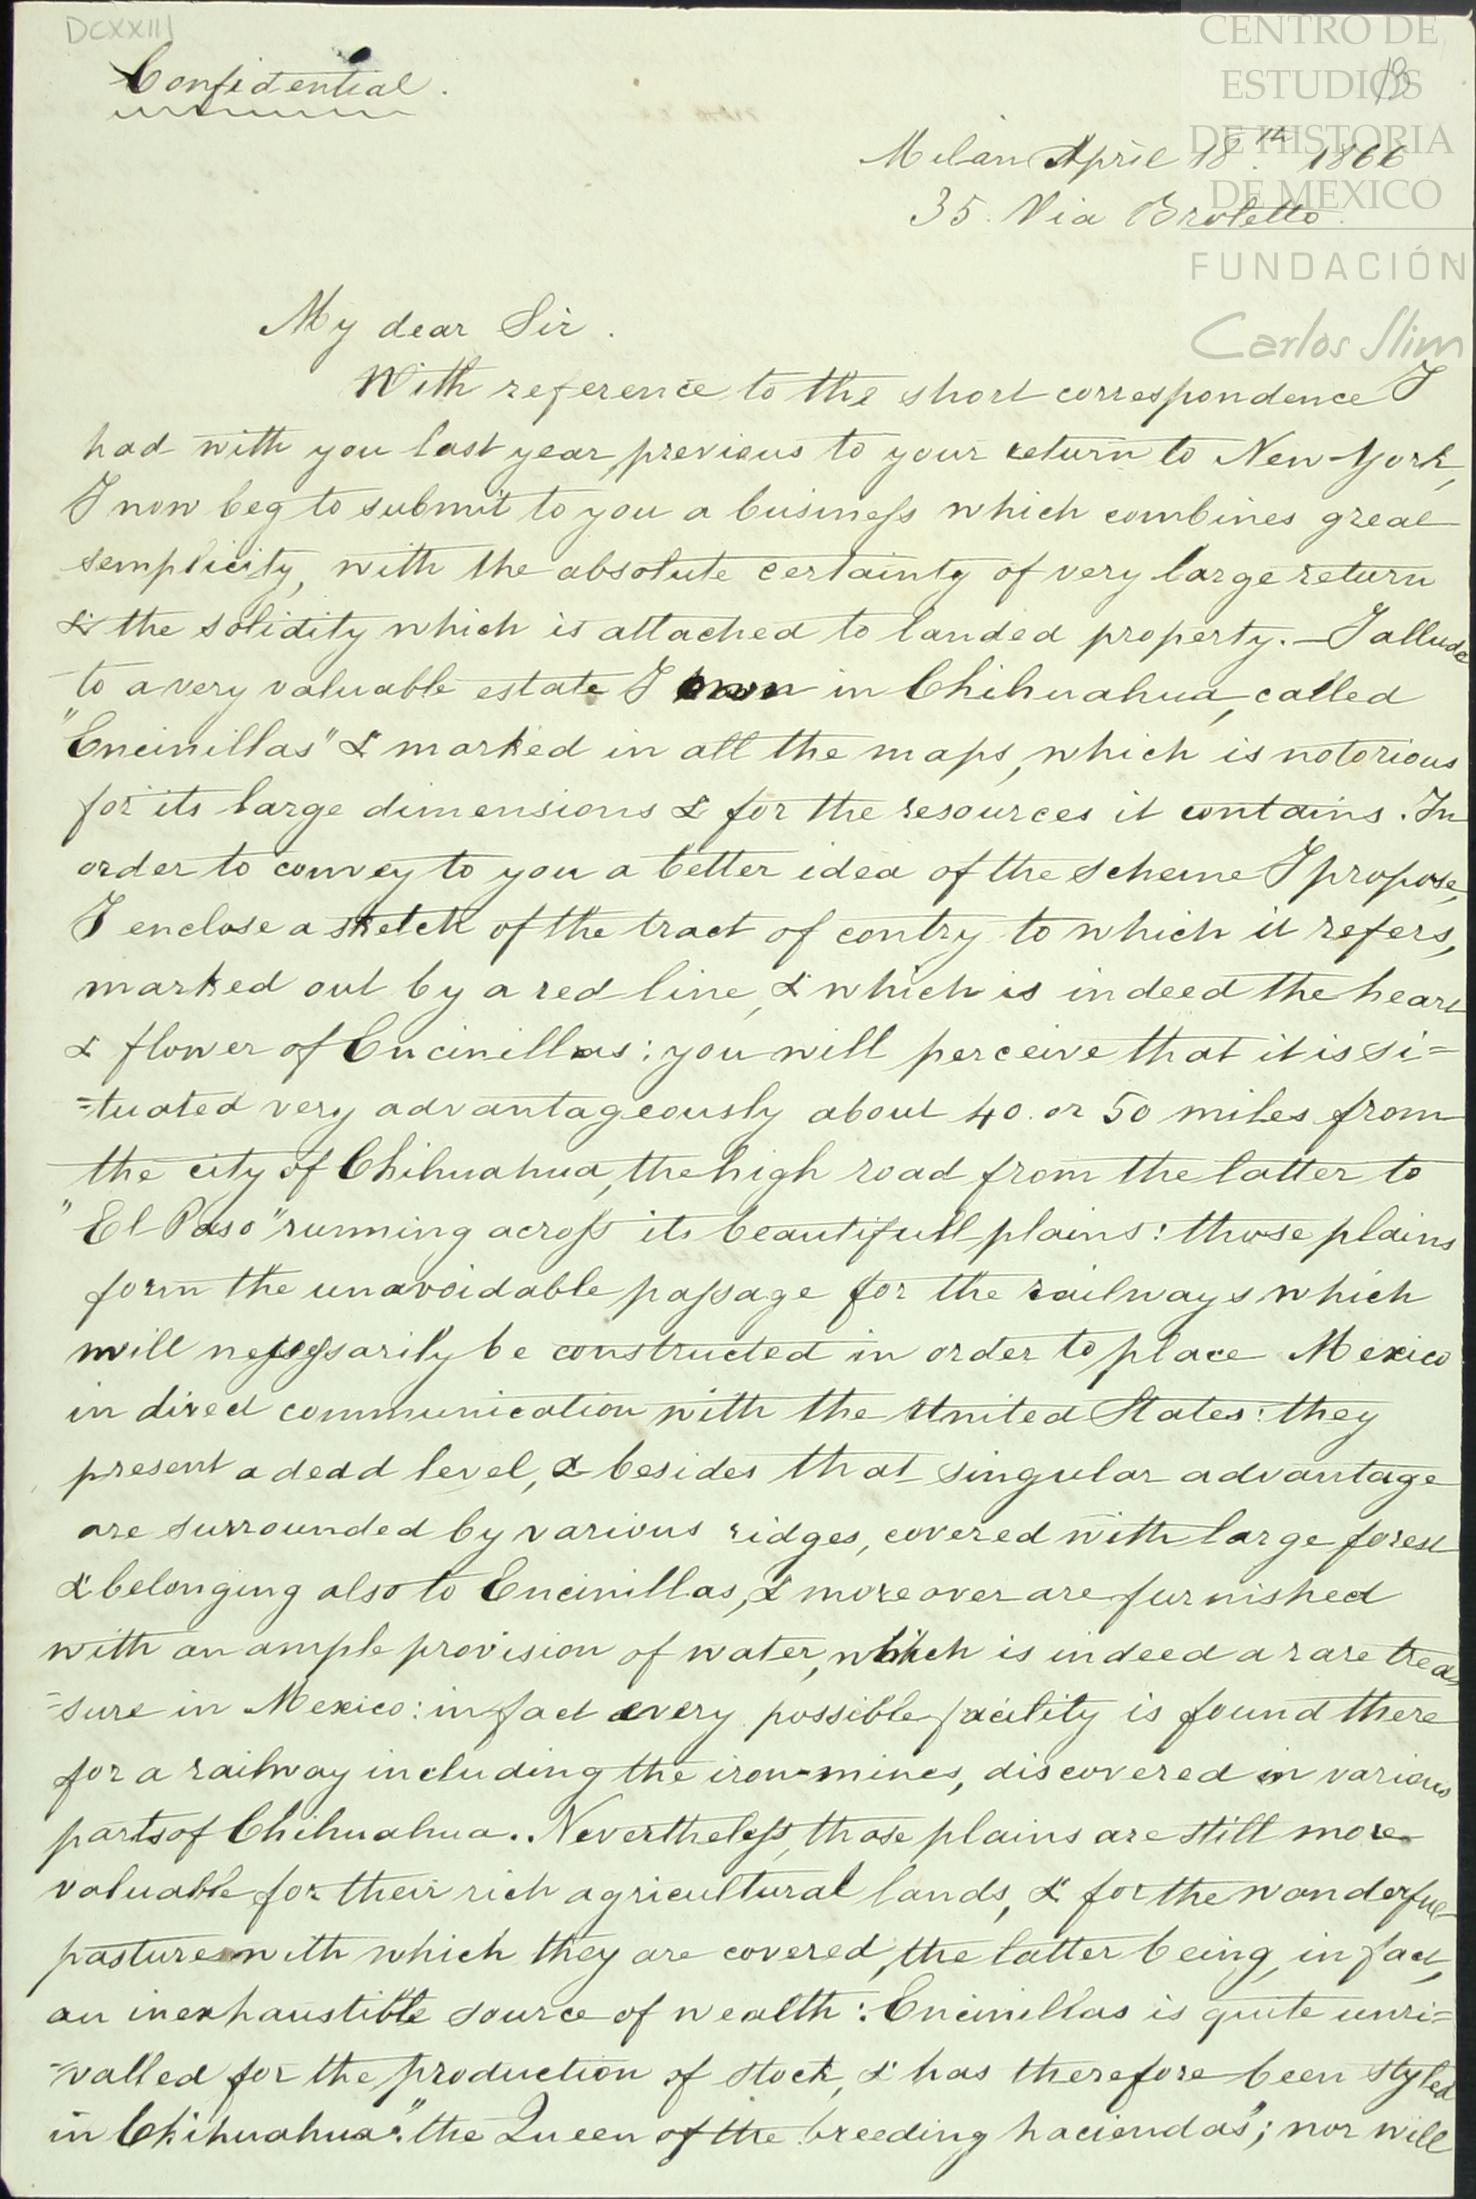 DCXXIII
Confidential.
CENTRO DE
ESTUDIOS
DE HISTORIA
DE MEXICO
FUNDACIÓN
Carlos Slim
Milan April 18th. 1866
35. Via Broletto.
My dear Sir.
With reference to the short correspondence I
had with you last year, previous to your return to New-York,
I now beg to submit to you a business which combines great
semplicity, with the absolute certainty of very large return
& the solidity which is attached to landed property. — I allude
to a very valuable estate I own in Chihuahua, called
"Encinillas" & marked in all the maps, which is notorious
for its large dimensions & for the resources it contains. In
order to convey to you a better idea of the scheme I propose,
I enclose a sketch of the tract of contry to which it refers,
marked out by a red line, & which is indeed the heart
& flower of Encinillas: you will perceive that it is si=
=tuated very advantageously about 40. or 50 miles from
the city of Chihuahua, the high road from the latter to
"El Paso" running across its beautifull plains: those plains
form the unavoidable passage for the railways which
will necessarily be constructed in order to place Mexico
in direct communication with the United States: they
present a dead level, & besides that singular advantage
are surrounded by various ridges, covered with large forest
& belonging also to Encinillas, & moreover are furnished
with an ample provision of water, which is indeed a rare trea
=sure in Mexico: in fact every possible facility is found there
for a railway including the iron-mines, discovered in various
parts of Chihuahua.. Nevertheless, those plains are still more
valuable for their rich agricultural lands, & for the wonderful
pastures with which they are covered, the latter being, in fact,
an inexhaustible source of wealth: Encinillas is quite unri=
=valled for the production of stock, & has therefore been styled
in Chihuahua: "the Queen of the breeding haciendas"; nor will